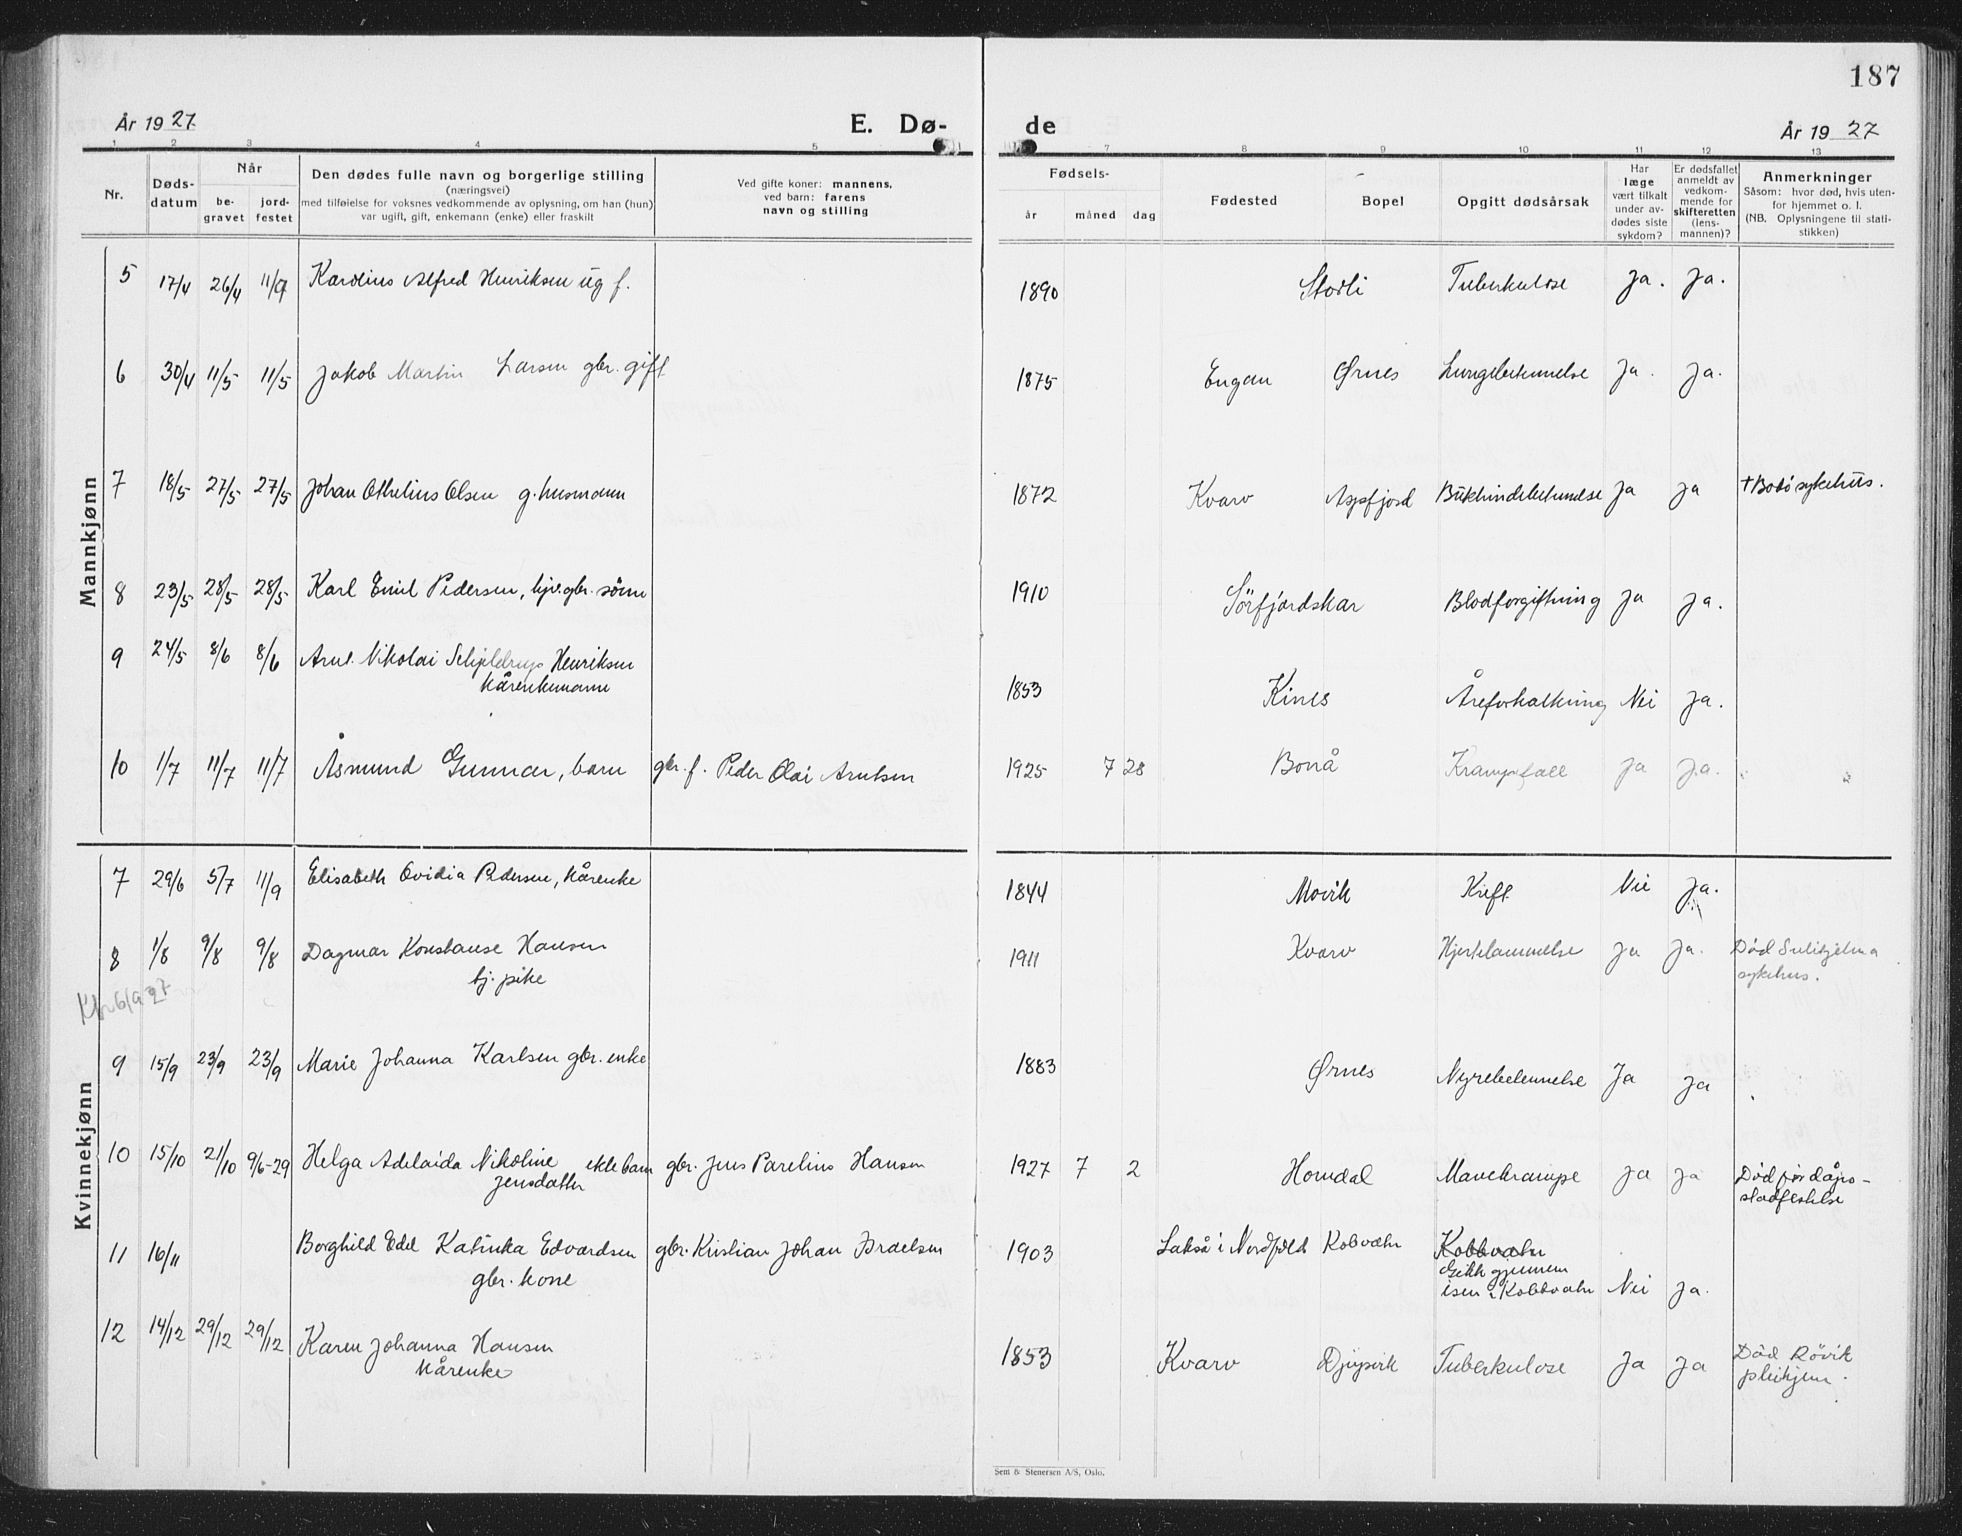 187
År 1927.
E. Dø-
de
År 1927
1 2 3 4 5 7 8 9 10 11 12 13
Nr.
Døds-
datum
Når
be-
gravet
jord-
festet
Den dødes fulle navn og borgerlige stilling
(næringsvei)
med tilføielse for voksnes vedkommende av oplysning, om han (hun)
var ugift, gift, enkemann (enke) eller fraskilt
Ved gifte koner: mannens,
ved barn: farens
navn og stilling
Fødsels-
år måned dag
Fødested
Bopel
Opgitt dødsårsak
Har
læge
vært tilkalt
under av-
dødes siste
sykdom?
Er dødsfallet
anmeldt av
vedkom-
mende for
skifteretten
(lens-
mannen)?
Anmerkninger
Såsom: hvor død, hvis uten-
for hjemmet o. l.
(NB. Oplysningene til stati-
stikken)
Mannkjønn
5 17/4 26/4 11/9 Karolius Alfred Henriksen ug f. 1890 Storli Tuberkulose Ja. Ja.
6 30/4 11/5 11/5 Jakob Martin Larsen gbr. gift 1875 Engan Ørnes Lungebetennelse Ja. Ja.
7 18/5 27/5 27/5 Johan Othelius Olsen g. husmann 1872 Kvarv Aspfjord Bukhindebetennelse Ja Ja † Bodö sykehus.
8 23/5 28/5 28/5 Karl Emil Pedersen, hjv. gbr. sönn 1910 Sörfjordskar Blodforgiftning Ja Ja.
9 24/5 8/6 8/6 Arnt Nikolai Schjeldrup Henriksen
kårenkemann 1853 Kines Åreforkalkning Nei Ja.
10 1/7 11/7 11/7 Åsmund Gunnar, barn gbr. f. Peder Olai Arntsen 1925 7 28 Bonå Krampefall Ja Ja.
Kvinnekjønn
7 29/6 5/7 11/9 Elisabeth Ovidia Pedersen, kårenke 1844 Movik Kreft Nei Ja.
8 1/8 9/8 9/8 Dagmar Konstanse Hansen
tj. pike 1911 Kvarv Hjertelammelse Ja Ja. Död Sulitjelma
sykehus.
6/9 27
9 15/9 23/9 23/9 Marie Johanna Karlsen gbr. enke 1883 Ørnes Nyrebetennelse Ja Ja
10 15/10 21/10 9/6-29 Helga Adelaida Nikoline ekte barn gbr. Jens Parelius Hansen 1927 7 2 Horndal Mavekrampe Ja Ja Död för dåps-
Jensdatter stadfestelse
11 16/11 Borghild Edel Katinka Edvardsen gbr. Kristian Johan Israelsen 1903 Lakså i Nordfold Kobvatn Kobbvatn
gbr. kone Gikk gjennem
isen i Kobbvatn Nei Ja.
12 14/12 29/12 29/12 Karen Johanna Hansen
kårenke 1853 Kvarv Djupvik Tuberkulose Ja Ja Död Rövik
pleihjem.
Sem & Stenersen A/S, Oslo.